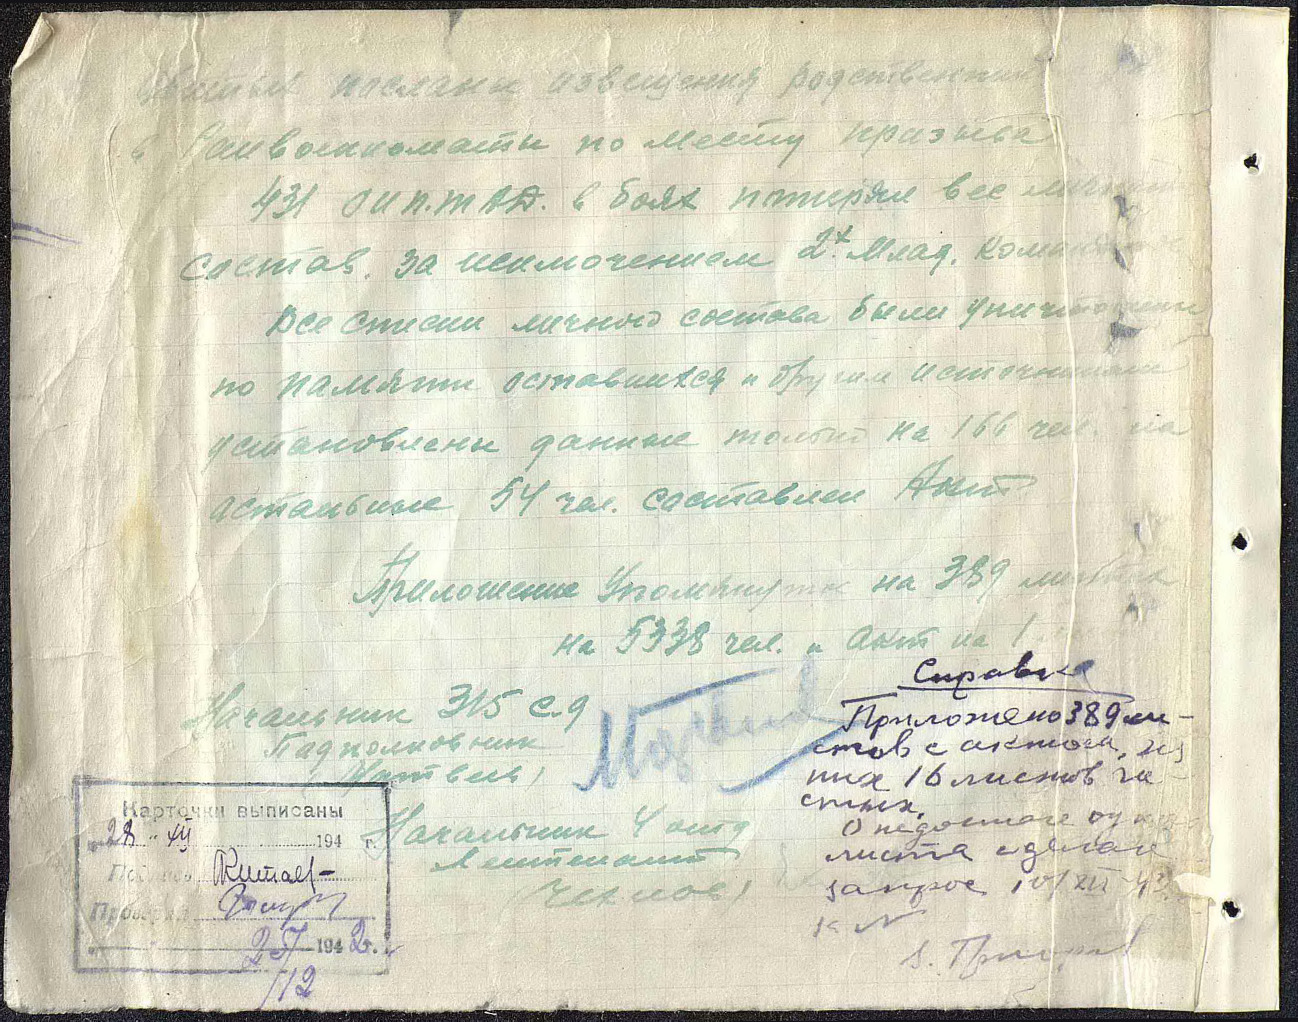 послани извещения родственник
в Райвоенкоматы по месту призыва
431 ОИПТАД. в боях потерял весь личный
состав. за исключением 2х млад. команд
Все списки личного состава были уничтожены
по памяти оставшихся и другим источникам
установлены данные только на 166 чел. на
остальные 54 чел. составлен Акт
Приложение Упомянутое на 389 листах
на 5338 чел. и акт на 1
Начальник 315 с.д
Подполковник
Начальник 4 отд
лейтенант
(Чехлов)
Справка
Приложено 389 ли-
стов с актом, из
них 16 листов чи-
стых.
О недостаче
листа сделан
запрос 10/XII-42
к №
Карточки выписаны
"28" XII 194 г.
Подпись
Проверил
25/12 1942 г.